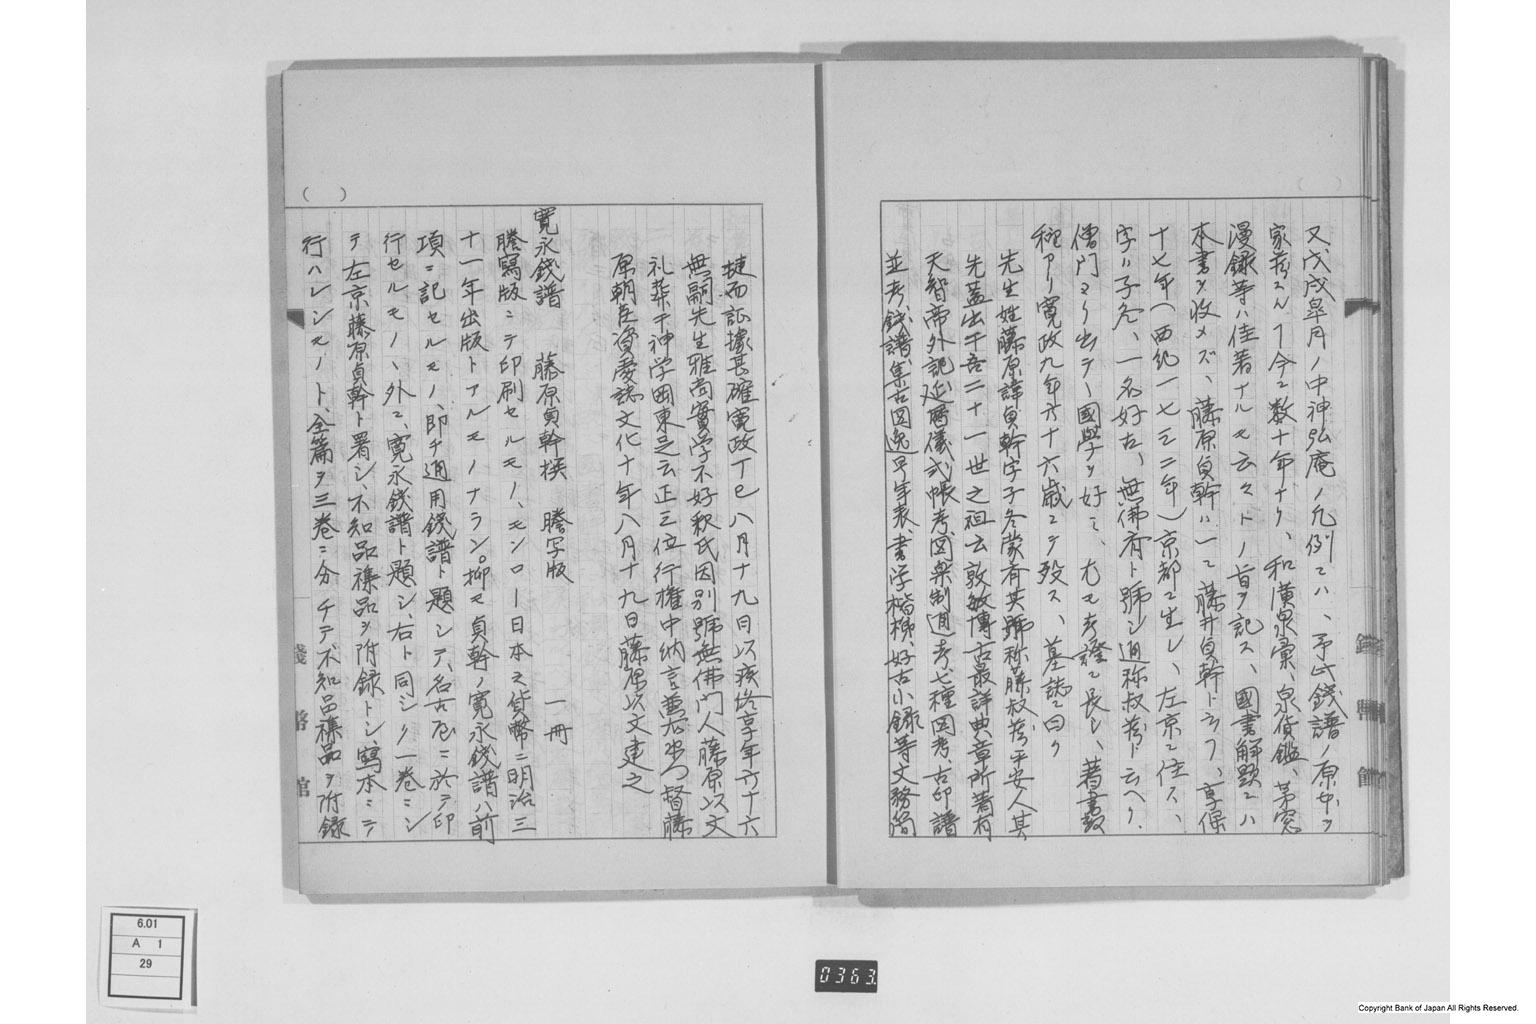 又、戊戌皐月ノ中神弘庵ノ凡例ニハ、予此錢譜ノ原本ヲ
家蔵スル丁今ニ数十年ナリ、和漢泉彙、泉貨鑑、茅窓
漫録等ハ佳著ナルモ云々トノ旨ヲ記ス、國書解題ニハ
本書ヲ收メズ、藤原貞幹ハ一ニ藤井貞幹ト云フ、享保
十七年(西紀一七三二年)京都ニ生レ、左京ニ住ス、
字ハ子冬、一名好古、無佛斎ト號シ通称叔蔵ト云ヘリ、
僧門ヨリ出テヽ國學ヲ好ミ、尤モ考證ニ長シ、著書数
種アリ寛政九年六十六歳ニテ歿ス、墓誌ニ曰ク
先生姓藤原諱貞幹字子冬蒙斎其號称藤叔蔵平安人其
先蓋出于吾二十一世之祖云敦敏博古最詳典章所著有
天智帝外記延暦儀式帳考図楽制通考、七種図考、古印譜
並考、銭譜、集古図逸号年表、書学楷梯、好古小録等文務簡
捷而証據甚確寛政丁巳八月十九日以疾終享年六十六
無嗣先生雅尚實学不好釈氏因別號無佛門人藤原以文
礼葬于神学岡東足云正三位行権中納言兼右衛門督藤
原朝臣資愛誌文化十年八月十九日藤原以文建之
寛永錢譜 藤原貞幹撰 謄写版 一冊
謄寫版ニテ印刷セルモノ、モンロー日本之貨幣ニ明治三
十一年出版トアルモノナラン。抑モ貞幹ノ寛永銭譜ハ前
項ニ記セルモノ、即チ通用錢譜ト題シテ、名古屋ニ於テ印
行セルモノヽ外ニ、寛永錢譜ト題シ、右ト同シク一巻ニシ
テ左京藤原貞幹ト署シ、不知品襍品ヲ附録トシ、寫本ニテ
行ハレシモノト、全篇ヲ三巻ニ分チテ不知品襍品ヲ附録
錢幣館
錢幣館
( )
( )
6.01
A 1
29
0363
Copyright Bank of Japan All Rights Reserved.